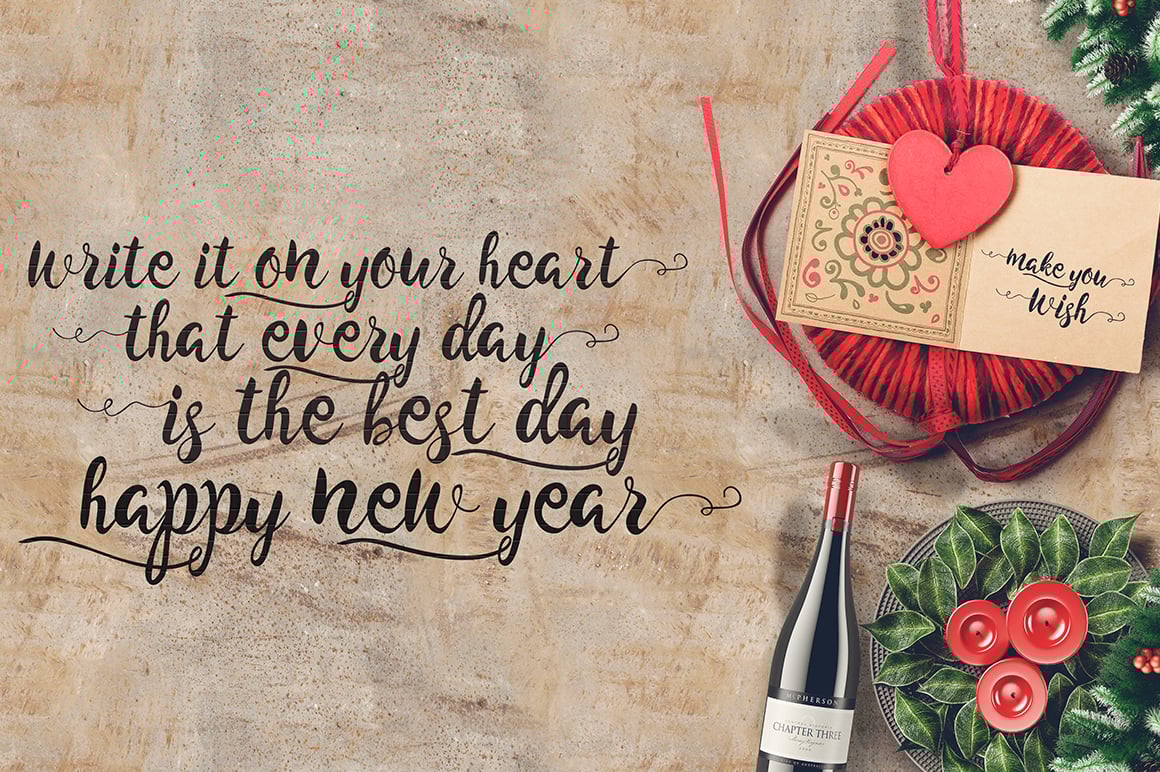 Write it on your heart
that every day
is the best day
happy new year
make you
Wish
McPHERSON
CHAPTER THREE